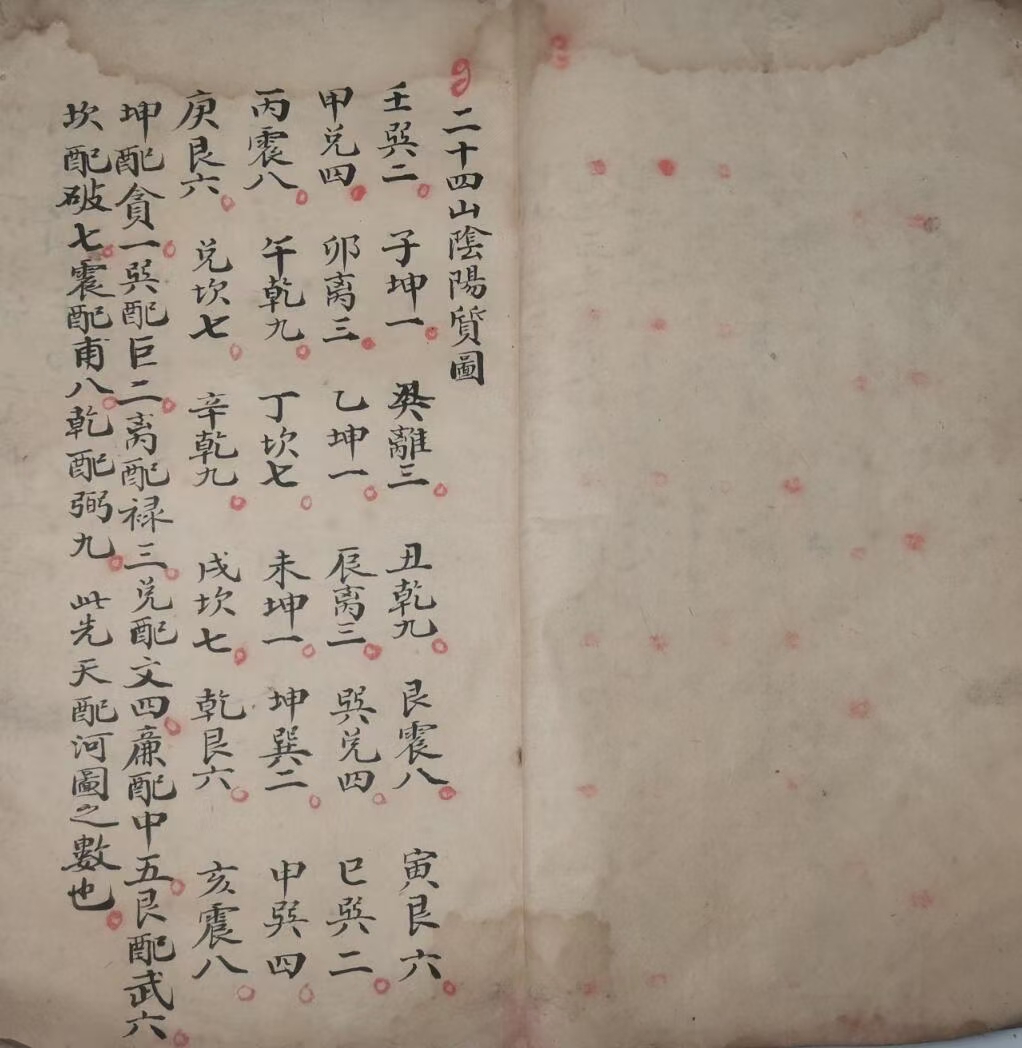 二十四山陰陽質圖
壬巽二 子坤一 癸離三 丑乾九 艮震八 寅艮六
甲兑四 卯离三 乙坤一 辰离三 巽兑四 巳巽二
丙震八 午乾九 丁坎七 未坤一 坤巽二 申巽四
庚艮六 兑坎七 辛乾九 戌坎七 乾艮六 亥震八
坤配貪一巽配巨二离配禄三兑配文四廉配中五艮配武六
坎配破七震配甫八乾配弼九 此先天配河圖之數也